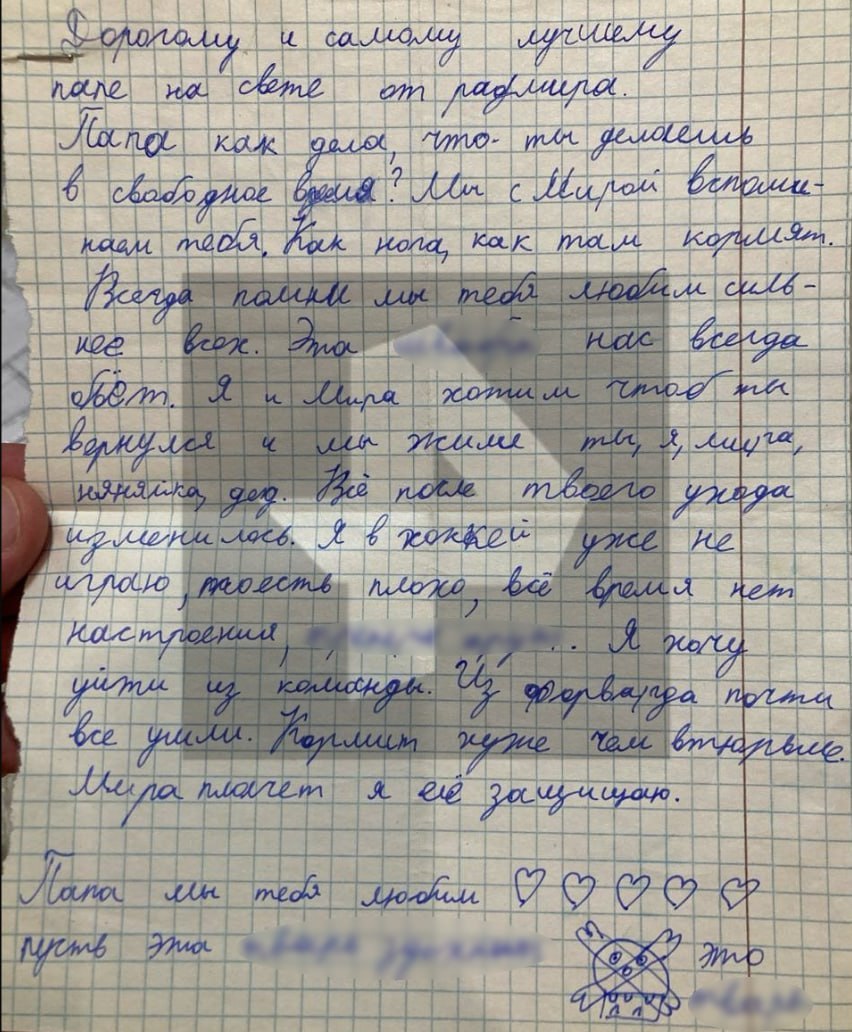 Дорогому и самому лучшему
папе на свете от радмира.
Папа как дела, что ты делаешь
в свободное время? Мы с Мирой вспоми-
наем тебя. Как нога, как там кормят.
Всегда помни мы тебя любим силь-
нее всех. Эта нас всегда
бьёт. Я и Мира хотим чтоб ты
вернулся и мы жили ты, я, мича,
няняйка, дед. Всё после твоего ухода
изменилось. Я в хоккей уже не
играю, тоесть плохо, всё время нет
настроения, . Я хочу
уйти из команды. Из форварда почти
все ушли. Кормит хуже чем втюрьме.
Мира плачет я её защищаю.
Папа мы тебя любим ♡ ♡ ♡ ♡ ♡
пусть эта это